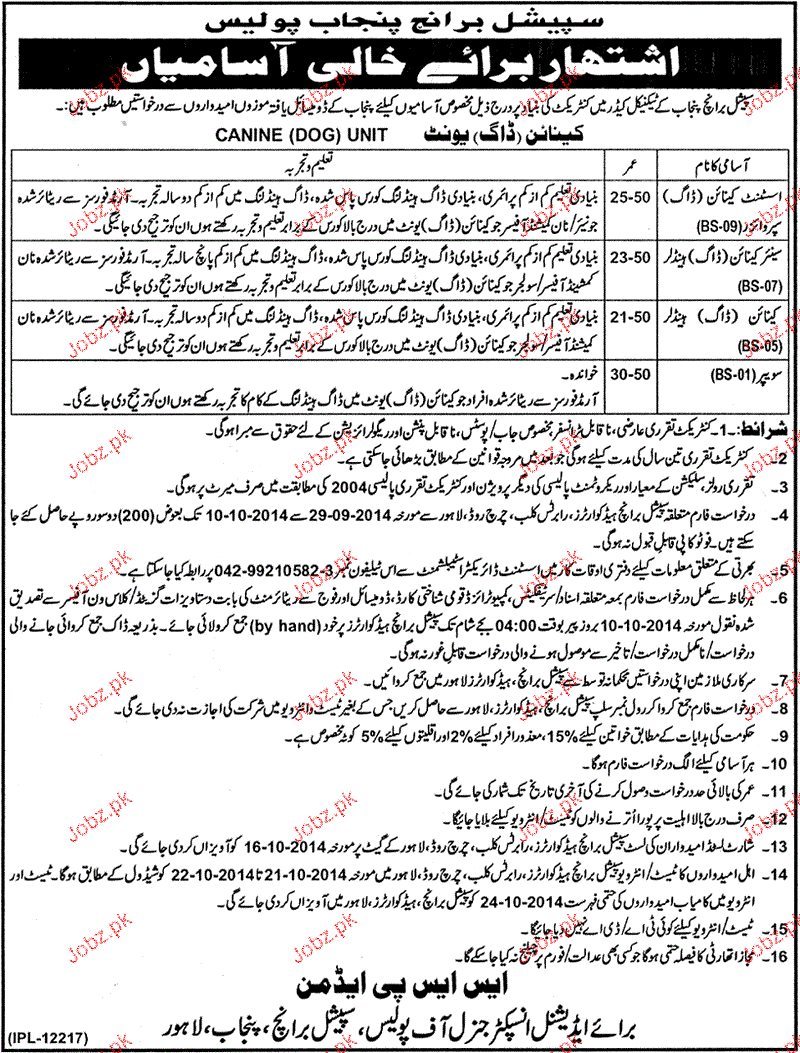 سپیشل برانچ پنجاب پولیس
اشتہار برائے خالی آسامیاں
سپیشل برانچ پنجاب کے ٹیکنیکل کیڈر میں کنٹریکٹ کی بنیاد پر درج ذیل مخصوص آسامیوں کیلئے پنجاب کے ڈومیسائل یافتہ موزوں امیدواروں سے درخواستیں مطلوب ہیں:۔
کینائن (ڈاگ) یونٹ CANINE (DOG) UNIT
آسامی کا نام عمر تعلیم و تجربہ
اسسٹنٹ کینائن (ڈاگ) 25-50 بنیادی تعلیم کم از کم پرائمری، بنیادی ڈاگ ہینڈلنگ کورس پاس شدہ، ڈاگ ہینڈلنگ میں کم از کم دو سالہ تجربہ۔ آرمڈ فورسز سے ریٹائر شدہ
سپروائزر (BS-09) جونیئر/نان کمیشنڈ آفیسر جو کینائن (ڈاگ) یونٹ میں درج بالا کورس کے برابر تعلیم و تجربہ رکھتے ہوں ان کو ترجیح دی جائیگی۔
سینئر کینائن (ڈاگ) ہینڈلر 23-50 بنیادی تعلیم کم از کم پرائمری، بنیادی ڈاگ ہینڈلنگ کورس پاس شدہ، ڈاگ ہینڈلنگ میں کم از کم پانچ سالہ تجربہ۔ آرمڈ فورسز سے ریٹائر شدہ نان
(BS-07) کمیشنڈ آفیسر/سولجر جو کینائن (ڈاگ) یونٹ میں درج بالا کورس کے برابر تعلیم و تجربہ رکھتے ہوں ان کو ترجیح دی جائیگی۔
کینائن (ڈاگ) ہینڈلر 21-50 بنیادی تعلیم کم از کم پرائمری، بنیادی ڈاگ ہینڈلنگ کورس پاس شدہ، ڈاگ ہینڈلنگ میں کم از کم دو سالہ تجربہ۔ آرمڈ فورسز سے ریٹائر شدہ نان
(BS-05) کمیشنڈ آفیسر/سولجر جو کینائن (ڈاگ) یونٹ میں درج بالا کورس کے برابر تعلیم و تجربہ رکھتے ہوں ان کو ترجیح دی جائیگی۔
سویپر (BS-01) 30-50 خواندہ۔
آرمڈ فورسز سے ریٹائر شدہ افراد جو کینائن (ڈاگ) یونٹ میں ڈاگ ہینڈلنگ کے کام کا تجربہ رکھتے ہوں ان کو ترجیح دی جائے گی۔
شرائط:۔ 1۔ کنٹریکٹ تقرری عارضی، ناقابل ٹرانسفر مخصوص جاب/پوسٹس، ناقابل پنشن اور ریگولرائزیشن کے لئے حقوق سے مبرا ہوگی۔
2۔ کنٹریکٹ تقرری تین سال کی مدت کیلئے ہوگی جو بعد میں مروجہ قوانین کے مطابق بڑھائی جاسکتی ہے۔
3۔ تقرری رولز، سلیکشن کے معیار اور ریکروٹمنٹ پالیسی کی دیگر پرویژن اور کنٹریکٹ تقرری پالیسی 2004 کی مطابقت میں صرف میرٹ پر ہوگی۔
4۔ درخواست فارم متعلقہ سپیشل برانچ ہیڈکوارٹرز، رابرٹس کلب، چرچ روڈ، لاہور سے مورخہ 29-09-2014 سے 10-10-2014 تک بعوض (200) دو سو روپے حاصل کئے جا
سکتے ہیں۔ فوٹو کاپی قابل قبول نہ ہوگی۔
5۔ بھرتی کے متعلق معلومات کیلئے دفتری اوقات کار میں اسسٹنٹ ڈائریکٹر اسٹیبلشمنٹ سے اس ٹیلیفون نمبر 3-99210582-042 پر رابطہ کیا جاسکتا ہے۔
6۔ ہر لحاظ سے مکمل درخواست فارم بمعہ متعلقہ اسناد/سرٹیفکیٹس، کمپیوٹرائزڈ قومی شناختی کارڈ، ڈومیسائل اور فوج سے ریٹائرمنٹ کی بابت دستاویزات گزیٹڈ/کلاس ون آفیسر سے تصدیق
شدہ نقول مورخہ 10-10-2014 بروز پیر بوقت 04:00 بجے شام تک سپیشل برانچ ہیڈکوارٹرز پر خود (by hand) جمع کرولائی جائے۔ بذریعہ ڈاک جمع کروائی جانے والی
درخواست/نامکمل درخواست/تاخیر سے موصول ہونے والی درخواست قابل غور نہ ہوگی۔
7۔ سرکاری ملازمین اپنی درخواستیں محکمانہ توسط سے سپیشل برانچ، ہیڈکوارٹرز لاہور میں جمع کروائیں۔
8۔ درخواست فارم جمع کروا کر رول نمبر سلپ سپیشل برانچ، ہیڈکوارٹرز، لاہور سے حاصل کریں جس کے بغیر ٹیسٹ و انٹرویو میں شرکت کی اجازت نہ دی جائے گی۔
9۔ حکومت کی ہدایات کے مطابق خواتین کیلئے 15%، معذور افراد کیلئے 2% اور اقلیتوں کیلئے 5% کوٹہ مخصوص ہے۔
10۔ ہر آسامی کیلئے الگ درخواست فارم ہوگا۔
11۔ عمر کی بالائی حد درخواست وصول کرنے کی آخری تاریخ تک شمار کی جائے گی۔
12۔ صرف درج بالا اہلیت پر پورا اترنے والوں کو ٹیسٹ/انٹرویو کیلئے بلایا جائیگا۔
13۔ شارٹ لسٹڈ امیدواران کی لسٹ سپیشل برانچ ہیڈکوارٹرز، رابرٹس کلب، چرچ روڈ، لاہور کے گیٹ پر مورخہ 16-10-2014 کو آویزاں کردی جائے گی۔
14۔ اہل امیدواروں کا ٹیسٹ/انٹرویو سپیشل برانچ ہیڈکوارٹرز، رابرٹس کلب، چرچ روڈ، لاہور میں مورخہ 21-10-2014 تا 22-10-2014 کو شیڈول کے مطابق ہوگا۔ ٹیسٹ اور
انٹرویو میں کامیاب امیدواروں کی حتمی فہرست 24-10-2014 کو سپیشل برانچ، ہیڈکوارٹرز، لاہور میں آویزاں کردی جائے گی۔
15۔ ٹیسٹ/انٹرویو کیلئے کوئی ٹی اے/ڈی اے نہیں دیا جائیگا۔
16۔ مجاز اتھارٹی کا فیصلہ حتمی ہوگا جو کسی بھی عدالت/فورم پر چیلنج نہ کیا جاسکے گا۔
ایس ایس پی ایڈمن
برائے ایڈیشنل انسپکٹر جنرل آف پولیس، سپیشل برانچ، پنجاب، لاہور
(IPL-12217)